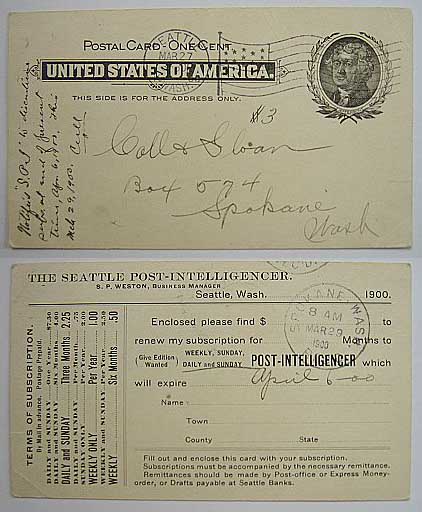 SEATTLE
MAR 27
WASH.
POSTAL CARD - ONE CENT.
UNITED STATES OF AMERICA.
THIS SIDE IS FOR THE ADDRESS ONLY.
#3
Coll & Sloan
Box 574
Spokane
Wash
Notified "S. P-I" to discontinue
paper at end of present
time, Apr 6, 1900. This
Mch 29, 1900.
THE SEATTLE POST-INTELLIGENCER.
S. P. WESTON, BUSINESS MANAGER
Seattle, Wash. 1900.
SPOKANE WASH.
8 AM
MAR 29
1900
Enclosed please find $ to
renew my subscription for Months to
(Give Edition Wanted) WEEKLY, SUNDAY, DAILY and SUNDAY POST-INTELLIGENCER which
will expire April 6 00
Name
Town
County State
Fill out and enclose this card with your subscription.
Subscriptions must be accompanied by the necessary remittance.
Remittances should be made by Post-office or Express Money-
order, or Drafts payable at Seattle Banks.
TERMS OF SUBSCRIPTION.
By Mail in advance. Postage Prepaid.
DAILY and SUNDAY One Year $7.50
DAILY and SUNDAY Six Months
DAILY and SUNDAY Three Months 2.25
DAILY and SUNDAY Per Month .75
SUNDAY ONLY Per Year 2.00
WEEKLY ONLY Per Year 1.00
WEEKLY Six Months .50